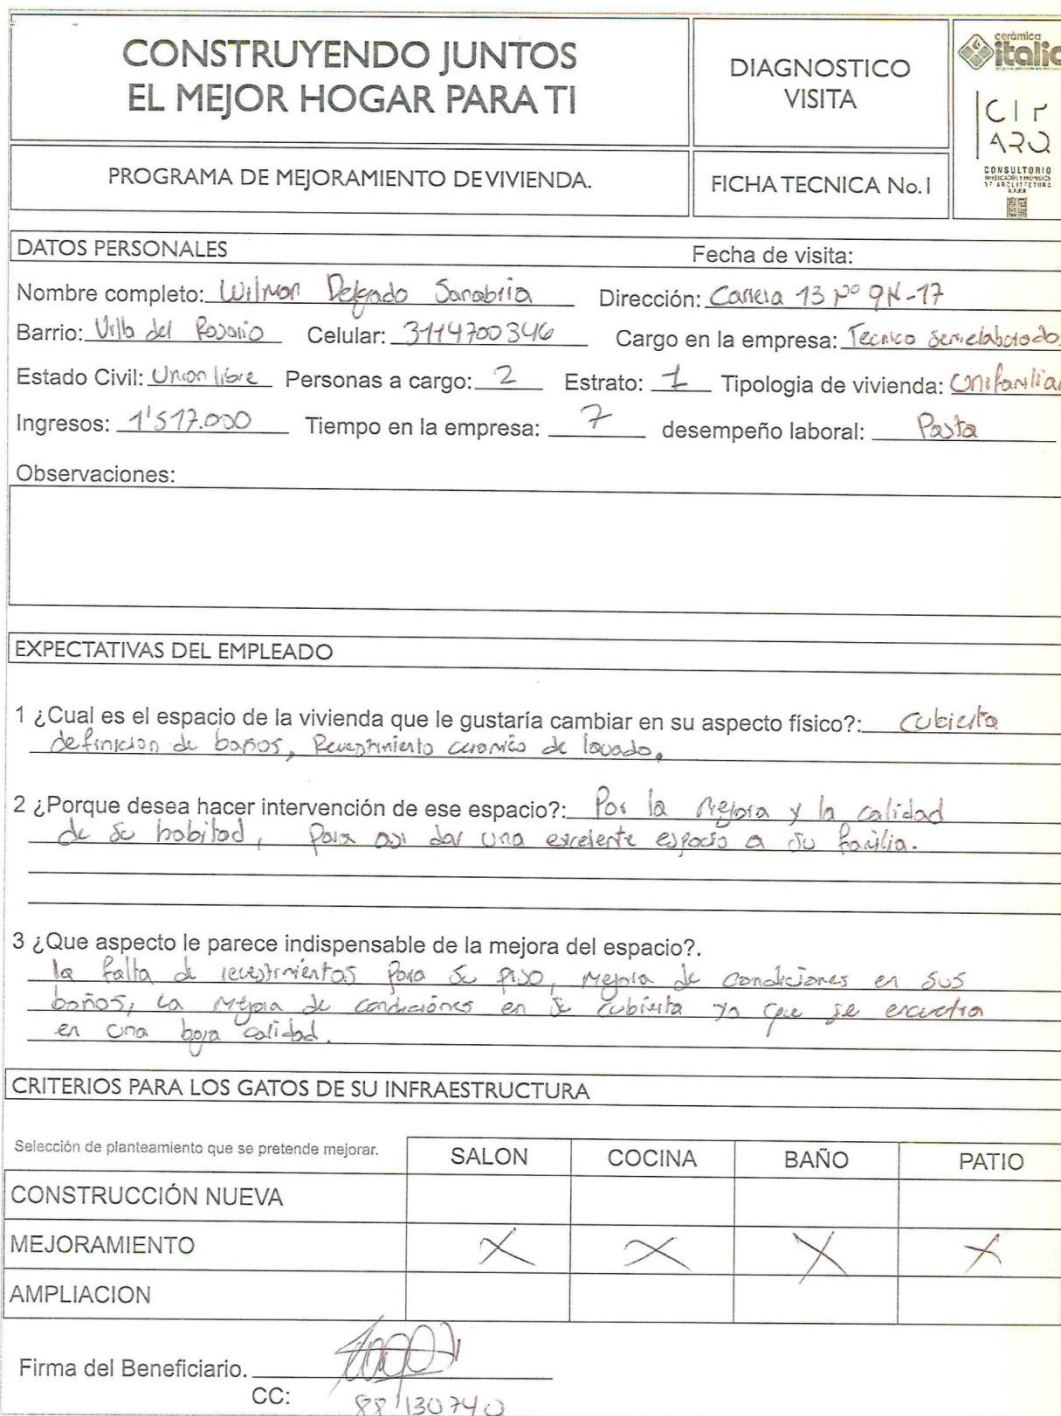 CONSTRUYENDO JUNTOS
EL MEJOR HOGAR PARA TI
DIAGNOSTICO
VISITA
cerámica
italia
CIP
ARQ
CONSULTORIO
PROGRAMA DE MEJORAMIENTO DE VIVIENDA.
FICHA TECNICA No.1
DATOS PERSONALES Fecha de visita:
Nombre completo: Wilmar Delgado Sanabria Dirección: Carrera 13 Nº 9N-17
Barrio: Villa del Rosario Celular: 3114700346 Cargo en la empresa: Tecnico semielaborado
Estado Civil: Union libre Personas a cargo: 2 Estrato: 1 Tipologia de vivienda: Unifamiliar
Ingresos: 1'517.000 Tiempo en la empresa: 7 desempeño laboral: Pasta
Observaciones:
EXPECTATIVAS DEL EMPLEADO
1 ¿Cual es el espacio de la vivienda que le gustaría cambiar en su aspecto físico?: Cubierta
definicion de baños, Revestimiento ceramico de lavado,
2 ¿Porque desea hacer intervención de ese espacio?: Por la mejora y la calidad
de su habitad, para asi dar una excelente espacio a su familia.
3 ¿Que aspecto le parece indispensable de la mejora del espacio?.
la falta de revestimientos para su piso, mejora de condiciones en sus
baños, la mejora de condiciónes en su cubierta ya que se encuetra
en una baja calidad.
CRITERIOS PARA LOS GATOS DE SU INFRAESTRUCTURA
Selección de planteamiento que se pretende mejorar. SALON COCINA BAÑO PATIO
CONSTRUCCIÓN NUEVA
MEJORAMIENTO X X X X
AMPLIACION
Firma del Beneficiario.
CC: 88'130740